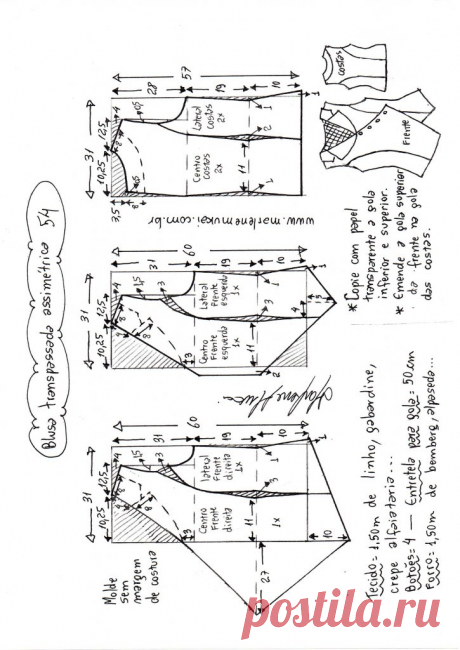 Blusa transpassada assimétrica 54
57
28
19
10
31
10,25
12,5
4
1,5
8
3,5
8
1,5
Lateral
costas
2x
Centro
costas
2x
11
1
2
1
1
www.marlenemukai.com.br
costas
Frente
60
31
19
10
31
10,25
12,5
4
1,5
3
8
9
8
1
3
Lateral
Frente
esquerda
1x
Centro
Frente
esquerda
1x
11
1
3
4
14
15
1
2
* Copie com papel
transparente a gola
inferior e superior.
* Emende a gola superior
da frente na gola
das costas.
60
31
19
10
31
10,25
12,5
4
1,5
3
8
9
8
3
lateral
Frente
direita
1x
Centro
Frente
direita
1x
11
1
3
1
10
27
Molde
sem
margem
de costura
Tecido = 1,50m de linho, gabardine,
crepe alfaiataria...
Botões = 4 — Entretela para gola = 50cm
Forro = 1,50m de bemberg, alpaseda...
postila.ru